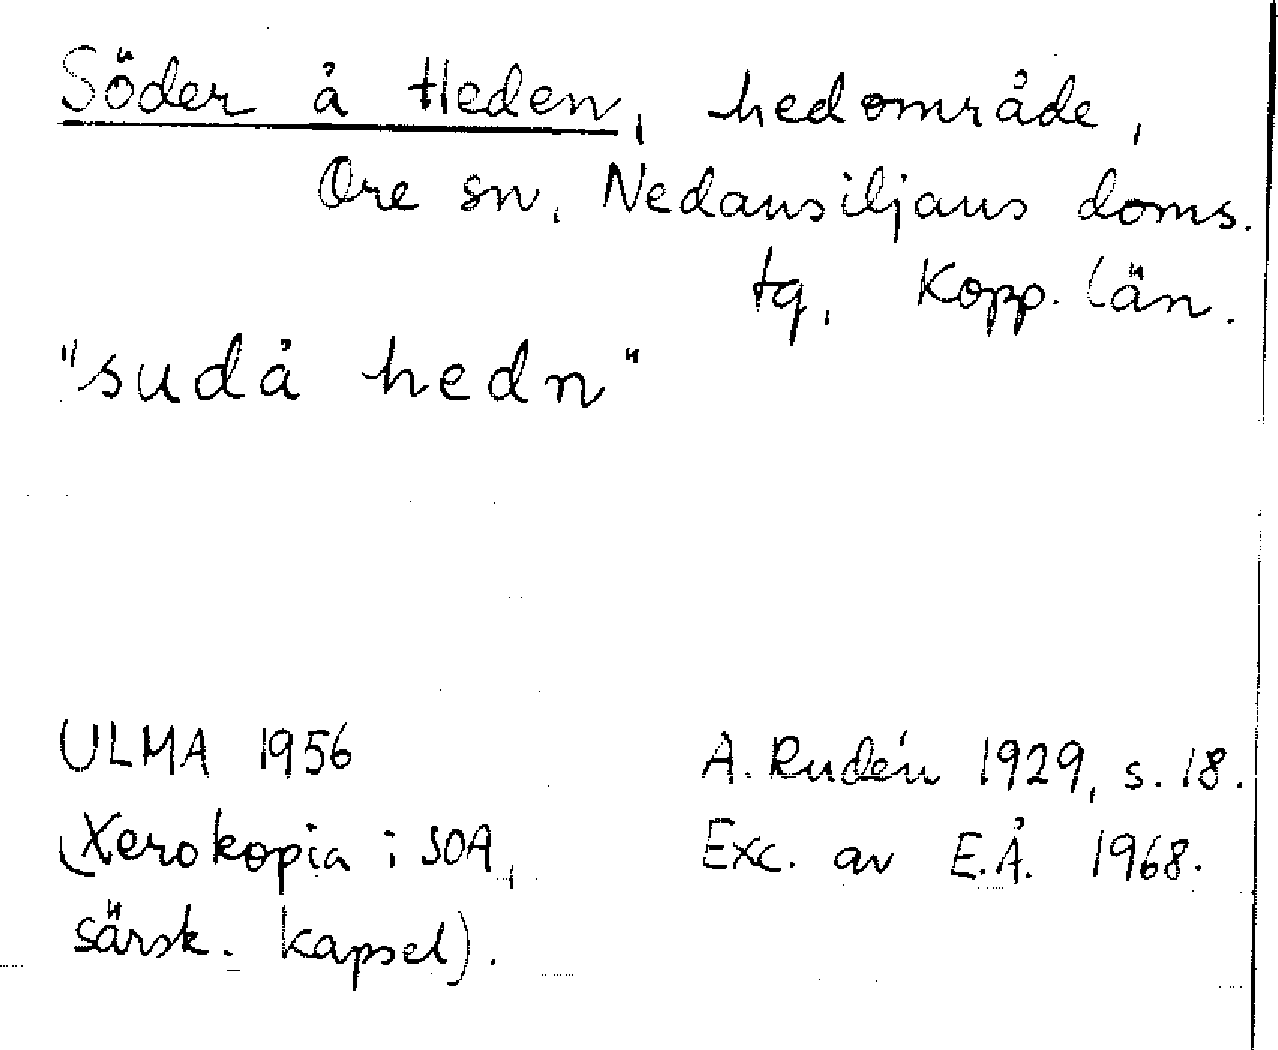 Söder å Heden, hedområde,
Ore sn, Nedansiljans doms.
tg, Kopp. län.
"sudå hedn"
ULMA 1956
(Xerokopia i SOA,
särsk. kapsel).
A. Rudén 1929, s. 18.
Exc. av E.Å. 1968.